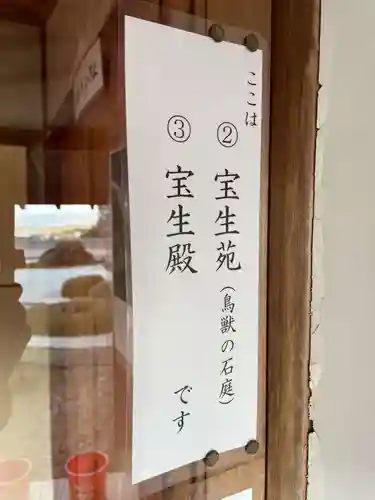 ここは
②宝生苑(鳥獣の石庭)
③宝生殿
です